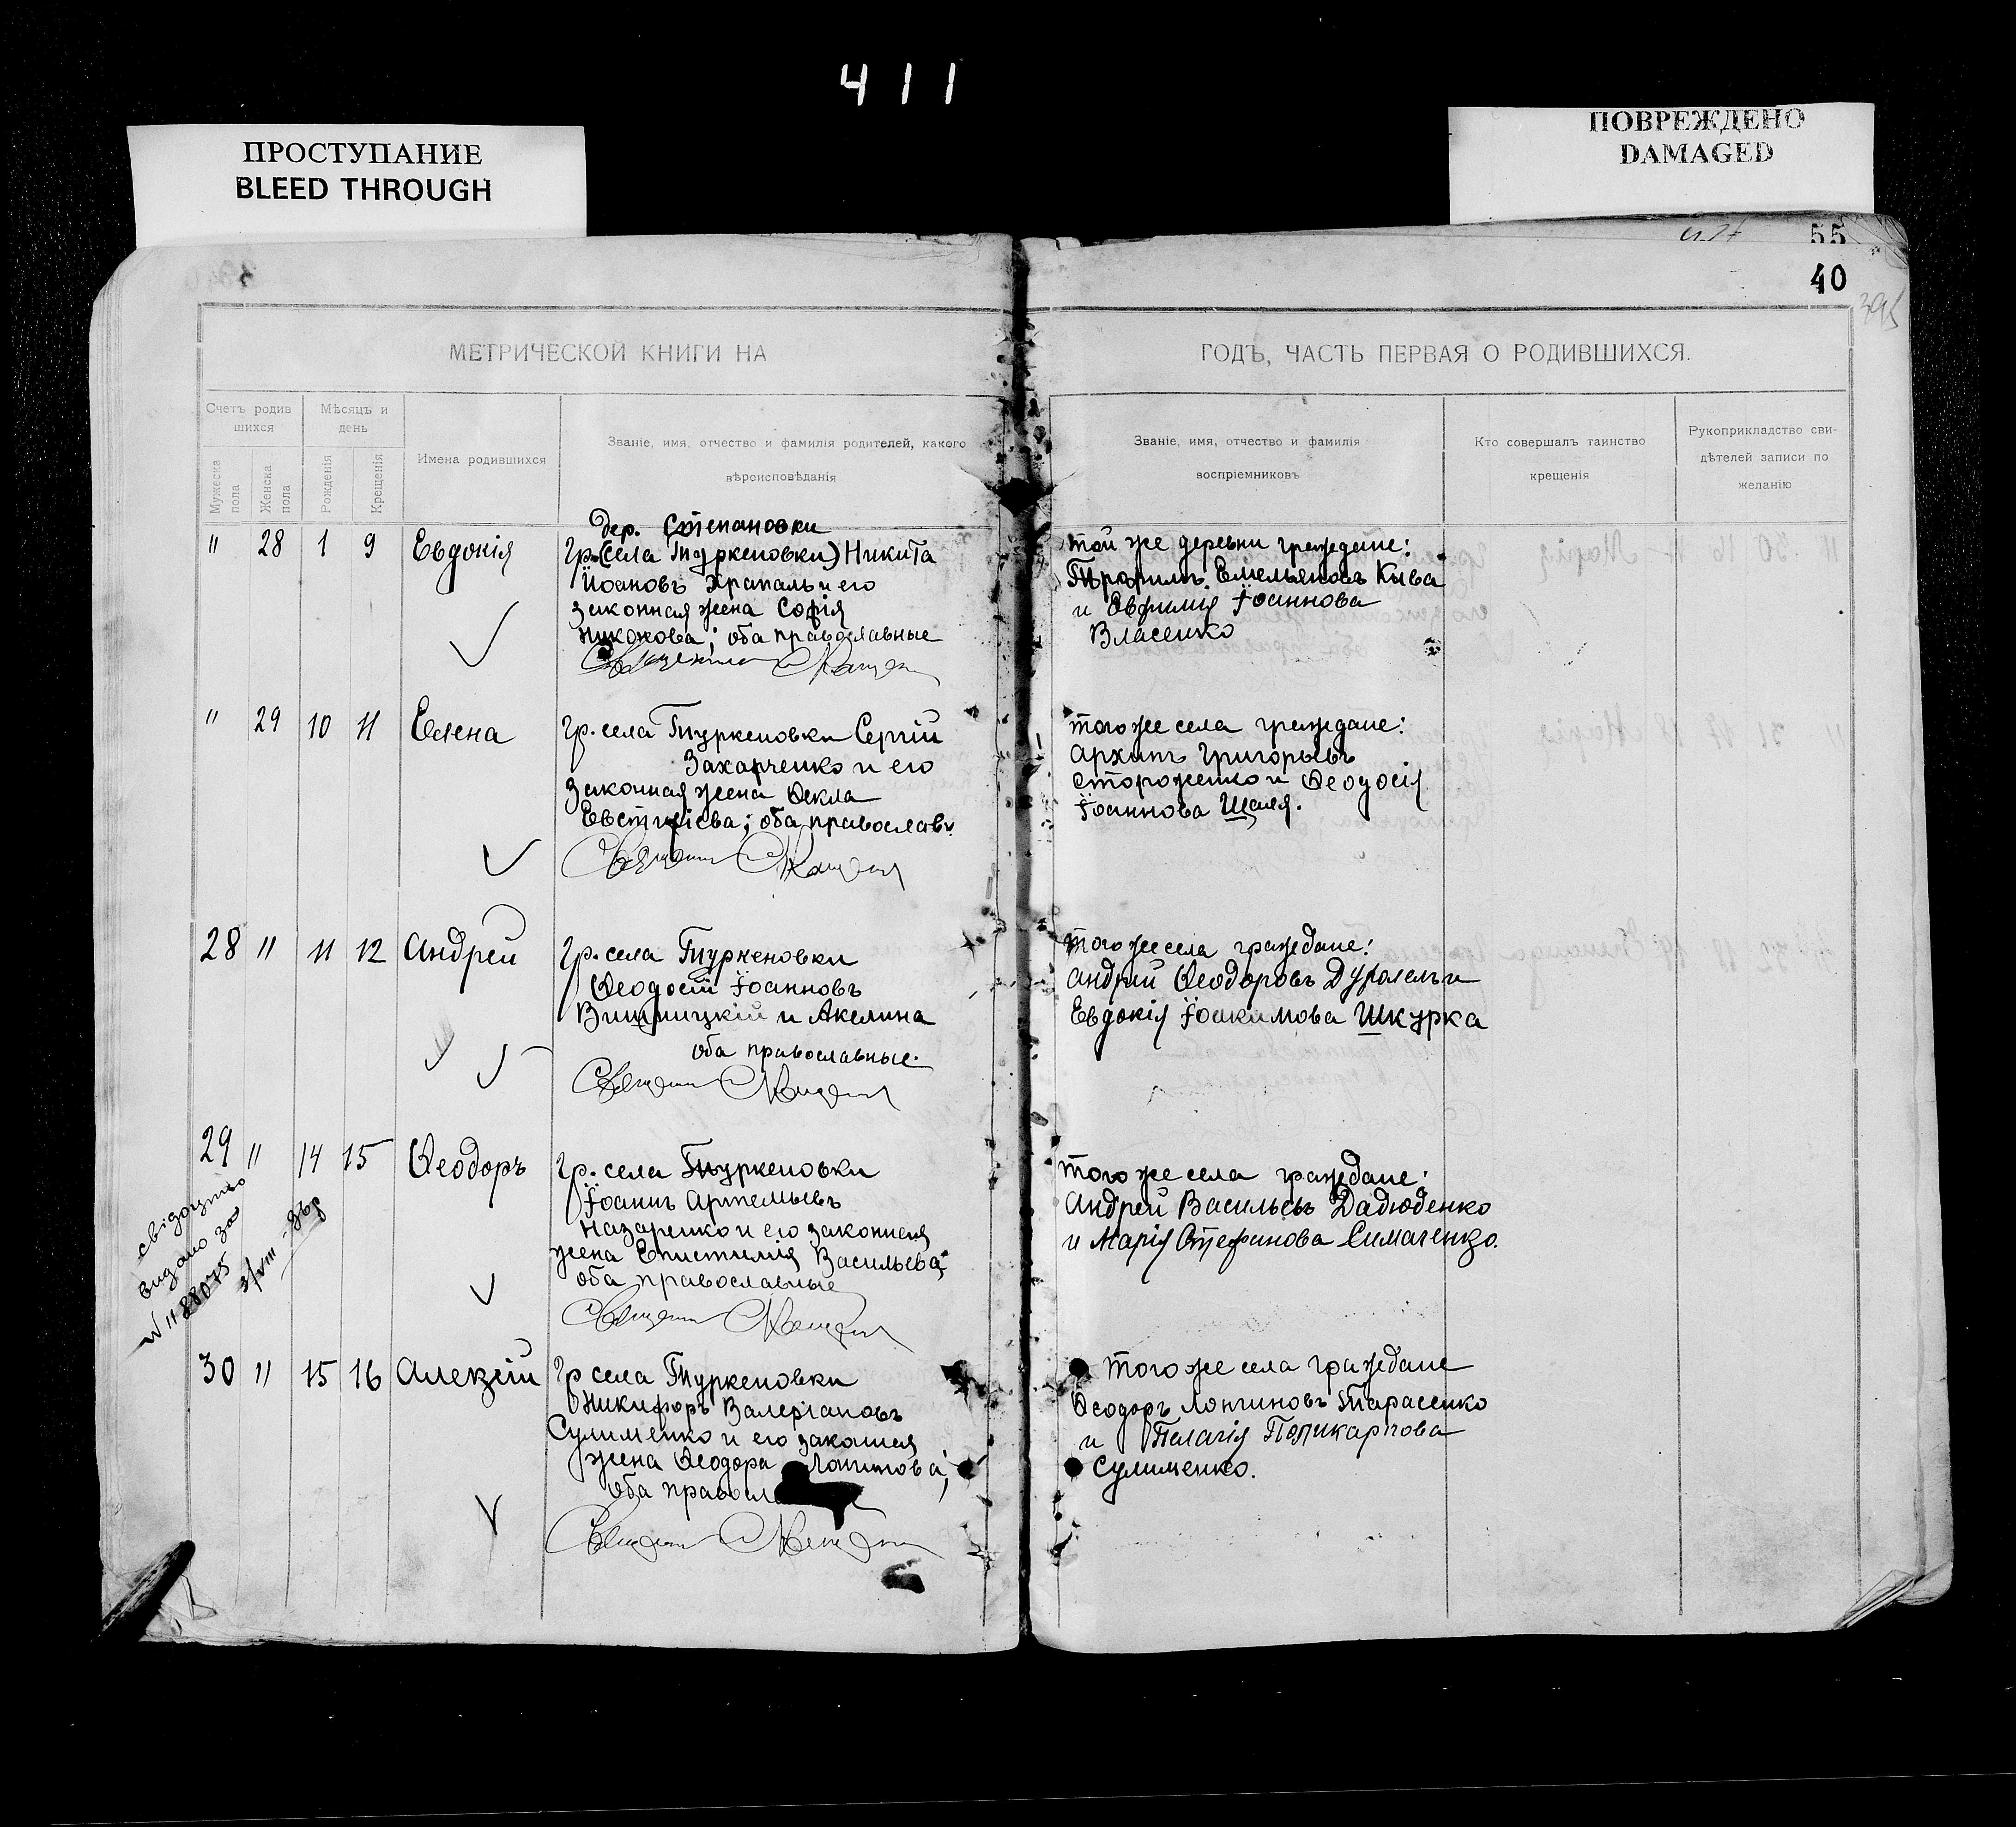 411
ПРОСТУПАНИЕ
BLEED THROUGH
ПОВРЕЖДЕНО
DAMAGED
55
40
395
МЕТРИЧЕСКОЙ КНИГИ НА
ГОДЪ, ЧАСТЬ ПЕРВАЯ О РОДИВШИХСЯ.
Счетъ родив
шихся
Мужеска
пола
Женска
пола
Мѣсяцъ и
день
Рожденія
Крещенія
Имена родившихся
Званіе, имя, отчество и фамилія родителей, какого
вѣроисповѣданія
Званіе, имя, отчество и фамилія
воспріемниковъ
Кто совершалъ таинство
крещенія
Рукоприкладство сви-
дѣтелей записи по
желанію
" 28 1 9 Евдокія
дер. Степановки
Гр. (села Туркеновки) Никита
Іоановъ Храпаль и его
законная жена Софія
Никонова; оба православные
той же деревни граждане:
Трофимъ Емельяновъ Кива
и Евфимія Іоаннова
Власенко
" 29 10 11 Елена
Гр. села Туркеновки Сергій
Захарченко и его
законная жена Ѳекла
Евстафіева; оба православн
того же села граждане:
Архипъ Григорьевъ
Стороженко и Ѳеодосія
Іоаннова
28 " 11 12 Андрей
Гр. села Туркеновки
Ѳеодосій Іоанновъ
Вишницкій и Акелина
оба православные.
того же села граждане:
Андрей Ѳеодоровъ
Евдокія Іоакимова Шкурка
29 " 14 15 Ѳеодоръ
Гр. села Туркеновки
Іоаннъ Артемьевъ
Назаренко и его законная
жена Епистимія Васильева;
оба православные
того же села граждане:
Андрей Васильевъ Дадюденко
и Марія Стефанова Симаченко.
свідоцтво
видано за
N 1188075
3/VIII
30 " 15 16 Алексій
Гр села Туркеновки
Никифоръ Валеріановъ
Сулименко и его законная
жена Ѳеодора Лонгинова;
оба правосла
того же села граждане
Ѳеодоръ Лонгиновъ Тарасенко
и Пелагія Поликарпова
Сулименко.